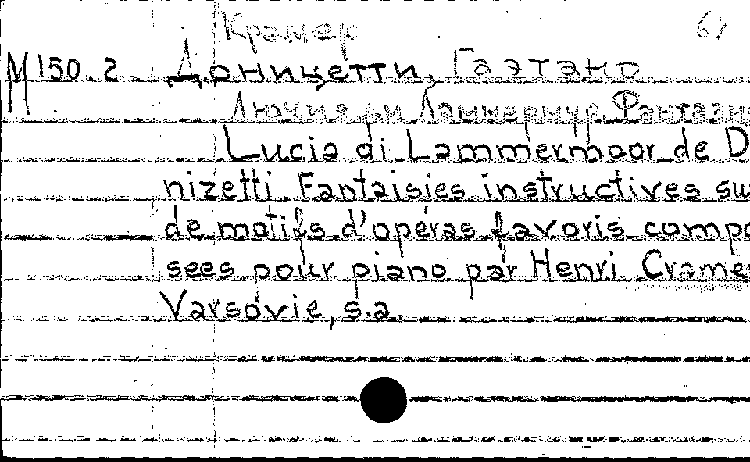 Крамер 61
М150.2 Доницетти, Гаэтано
Лючия ди Ламмермур. Фантазия
Lucia di Lammermoor de D
nizetti. Fantaisies instructives su
de motifs d'opéras favoris compo
sées pour piano par Henri Cramer
Varsovie, s.a.